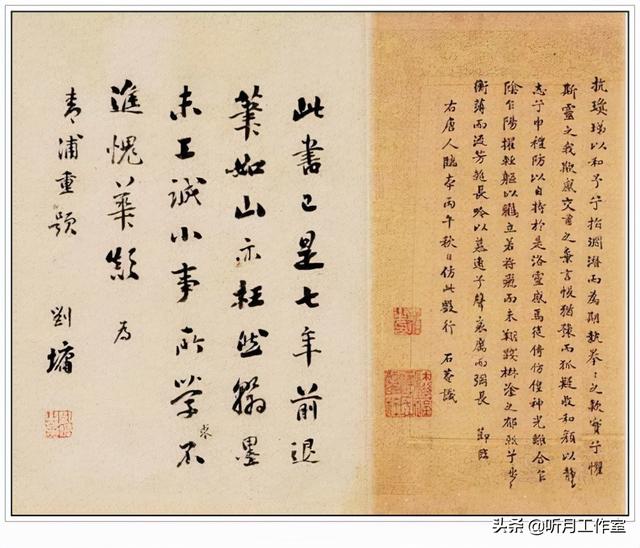 抗瓊珶以和予兮指淵潛而為期執拳〻之款實兮懼
斯靈之我欺感交甫之棄言悵猶豫而狐疑收和顏以靜
志兮申禮防以自持於是洛靈感焉徙倚彷徨神光離合乍
陰乍陽擢輕軀以鶴立若將飛而未翔踐椒塗之郁烈兮步
衡薄而流芳超長吟以慕遠兮聲哀厲而彌長 節臨
右唐人臨本丙午秋日仿此數行 石菴識
此書已是七年前退
筆如山亦枉然翰墨
未工誠小事所學來不
進愧華顛 為
青浦重題 劉墉
头条 @听月工作室